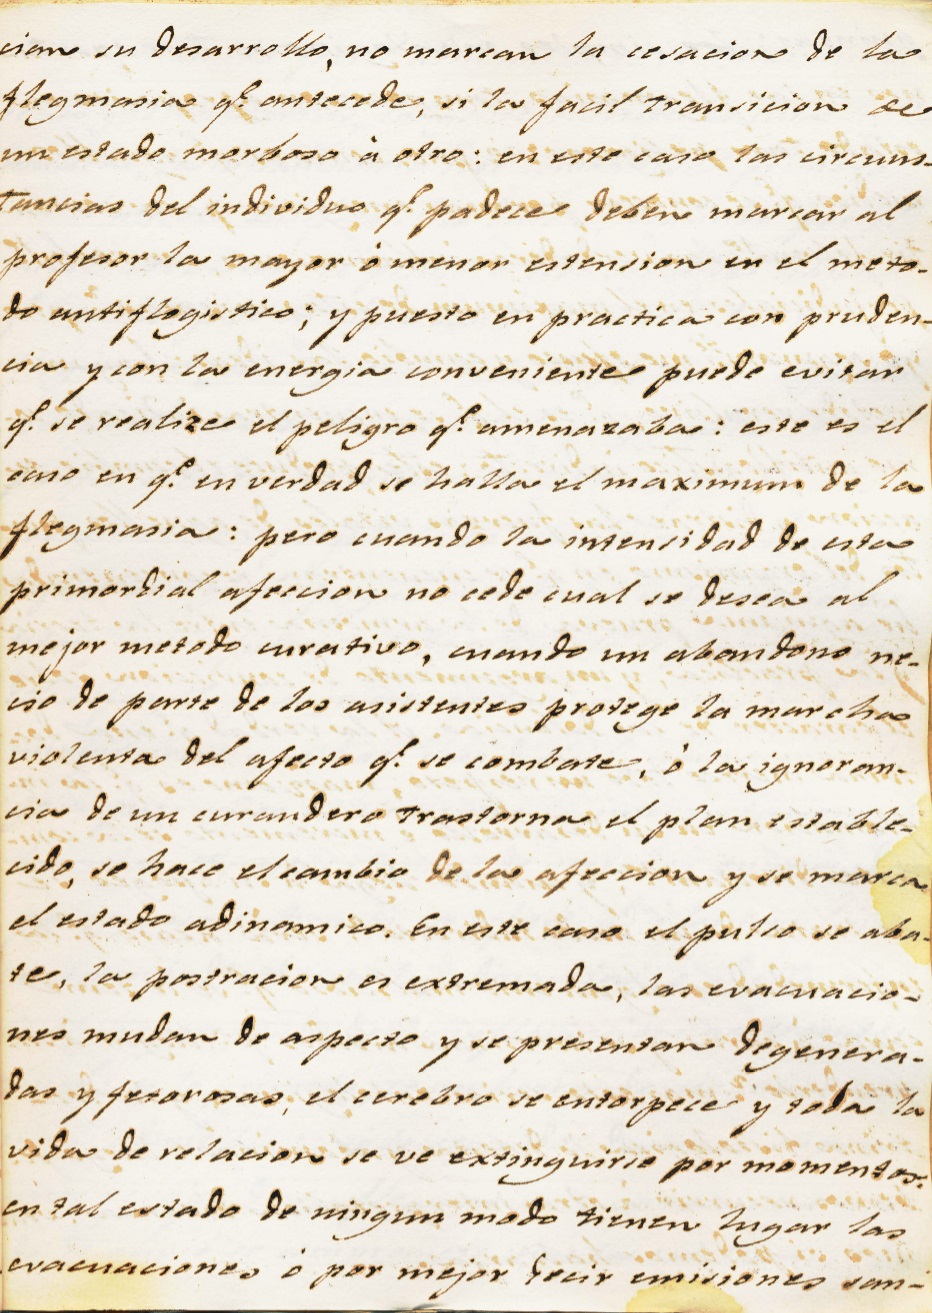 cian su desarrollo, no marcan la cesacion de la
flegmasia q.e antecede, si la facil transicion de
un estado morboso à otro: en este caso las circuns-
tancias del individuo q.e padece deben marcar al
profesor la mayor ò menor estension en el meto-
do antiflogistico; y puesto en practica con pruden-
cia y con la energia conveniente puede evitar
q.e se realize el peligro q.e amenazaba: este es el
caso en q.e en verdad se halla el maximum de la
flegmasia: pero cuando la intensidad de esta
primordial afeccion no cede cual se desea al
mejor metodo curativo, cuando un abandono ne-
cio de parte de los asistentes protege la marcha
violenta del afecto q.e se combate, ò la ignoran-
cia de un curandero trastorna el plan estable-
cido, se hace el cambio de la afeccion y se marca
el estado adinamico. En este caso el pulso se aba-
te, la postracion es extremada, las evacuacio-
nes mudan de aspecto y se presentan degenera-
das y fetorosas, el cerebro se entorpece y toda la
vida de relacion se ve extinguirse por momentos:
en tal estado de ningun modo tienen lugar las
evacuaciones ò por mejor decir emisiones san-